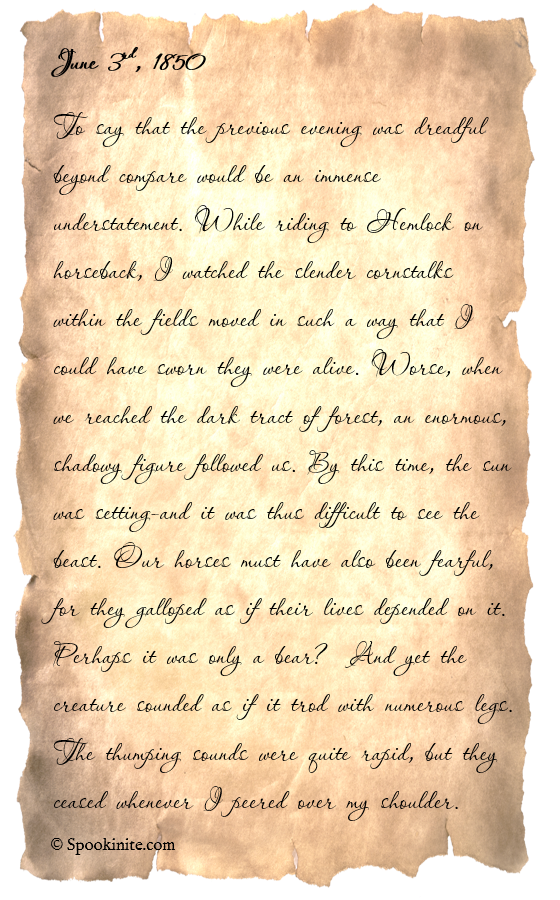 June 3rd, 1850
To say that the previous evening was dreadful
beyond compare would be an immense
understatement. While riding to Hemlock on
horseback, I watched the slender cornstalks
within the fields moved in such a way that I
could have sworn they were alive. Worse, when
we reached the dark tract of forest, an enormous,
shadowy figure followed us. By this time, the sun
was setting-and it was thus difficult to see the
beast. Our horses must have also been fearful,
for they galloped as if their lives depended on it.
Perhaps it was only a bear? And yet the
creature sounded as if it trod with numerous legs.
The thumping sounds were quite rapid, but they
ceased whenever I peered over my shoulder.
© Spookinite.com